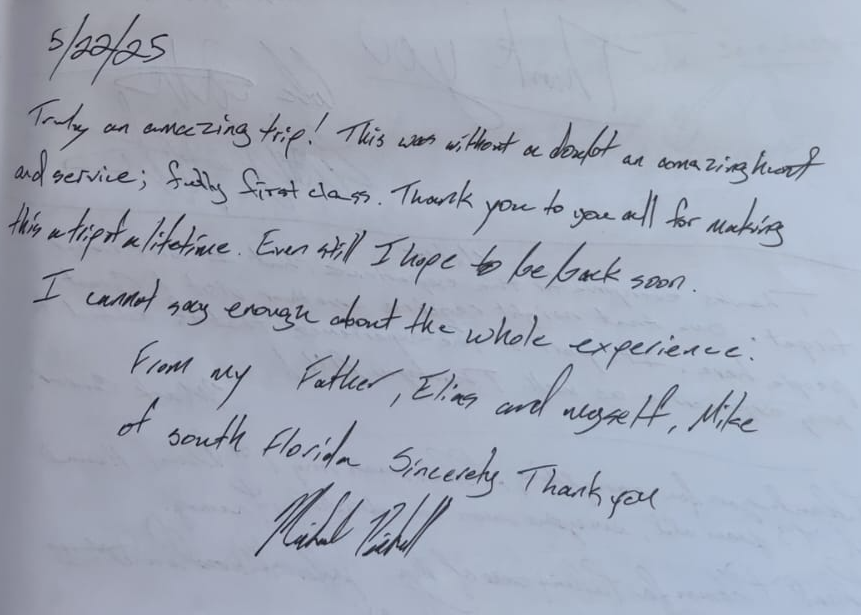 5/22/25
Truly an amazing trip! This was without a doubt an amazing hunt
and service; fully first class. Thank you to you all for making
this a trip of a lifetime. Even still I hope to be back soon.
I cannot say enough about the whole experience.
From my Father, Elias and myself, Mike
of south Florida Sincerely Thank you
Michael